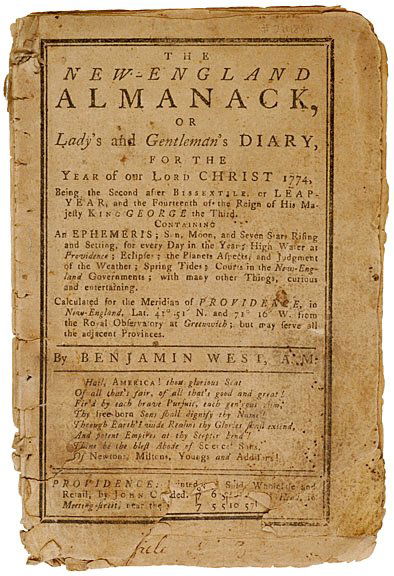 THE
NEW-ENGLAND
ALMANACK,
OR
Lady's and Gentleman's DIARY,
FOR THE
YEAR of our LORD CHRIST 1774,
Being the Second after BISSEXTILE, or LEAP-
YEAR, and the Fourteenth of the Reign of His Ma-
jesty KING GEORGE the Third.
CONTAINING
An EPHEMERIS; Sun, Moon, and Seven Stars Rising
and Setting, for every Day in the Year; High Water at
Providence; Eclipses; the Planets Aspects, and Judgment
of the Weather; Spring Tides; Courts in the New-Eng-
land Governments; with many other Things, curious
and entertaining.
Calculated for the Meridian of PROVIDENCE, in
New-England, Lat. 41° 51' N. and 71° 16' W. from
the Royal Observatory at Greenwich; but may serve all
the adjacent Provinces.
By BENJAMIN WEST, A.M.
Hail, AMERICA! thou glorious Seat
Of all that's fair, of all that's good and great!
Fir'd by each brave Pursuit, each gen'rous
Thy free-born Sons shall dignify thy Name:
Through Earth's wide Realms thy Glories shall extend,
And potent Empires at thy Scepter bend!
Thine be the blest Abode of
Of Newtons, Miltons, Youngs and Addisons!
PROVIDENCE: Printed and Sold, Wholesale and
Retail, by JOHN
Meeting-street, near the
7 5 5 10 57